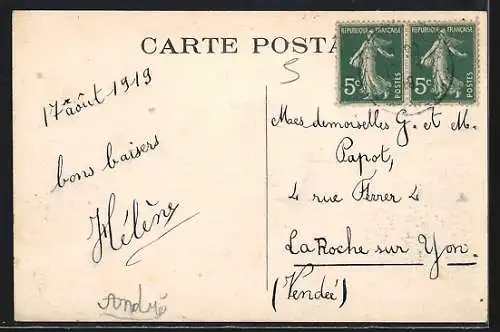 CARTE POSTA
RÉPUBLIQUE FRANÇAISE
5c POSTES
RÉPUBLIQUE FRANÇAISE
5c POSTES
5
17 août 1919
bons baisers
Hélène
André
Mesdemoiselles G. et M.
Papot,
4 rue Ferrer 4
La Roche sur Yon.
(Vendée)